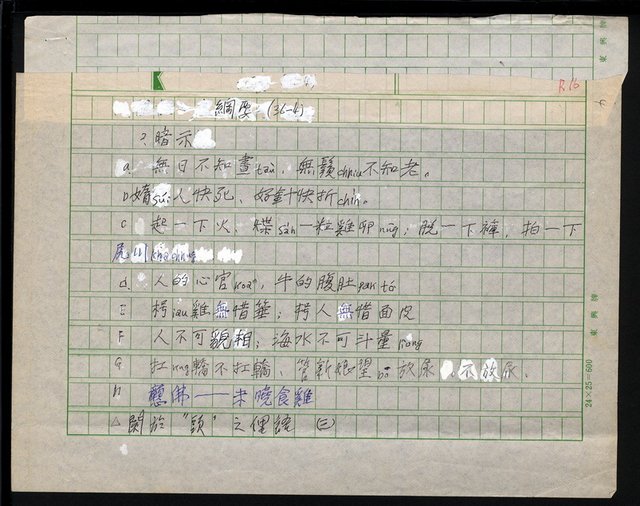 R16
綱要 (36-4)
2. 暗示
a. 無日不知晝taù, 無鬚chhiu不知老。
b 媠súi人快死, 好針快折chi̍h。
C 起一下火, 煠sa̍h一粒雞卵nn̄g; 脫一下褲, 拍一下
尻川
d. 人的心官koaⁿ, 牛的腹肚pak tó
E 枵iau雞無惜箠; 枵人無惜面皮
F 人不可貌相; 海水不可斗量liông
G 扛kng轎不扛轎、管新娘放尿不放尿.
H 戇佛——未曉食雞
△ 關於"頭"之俚諺 (三)
24×25=600
東興牌
東興牌